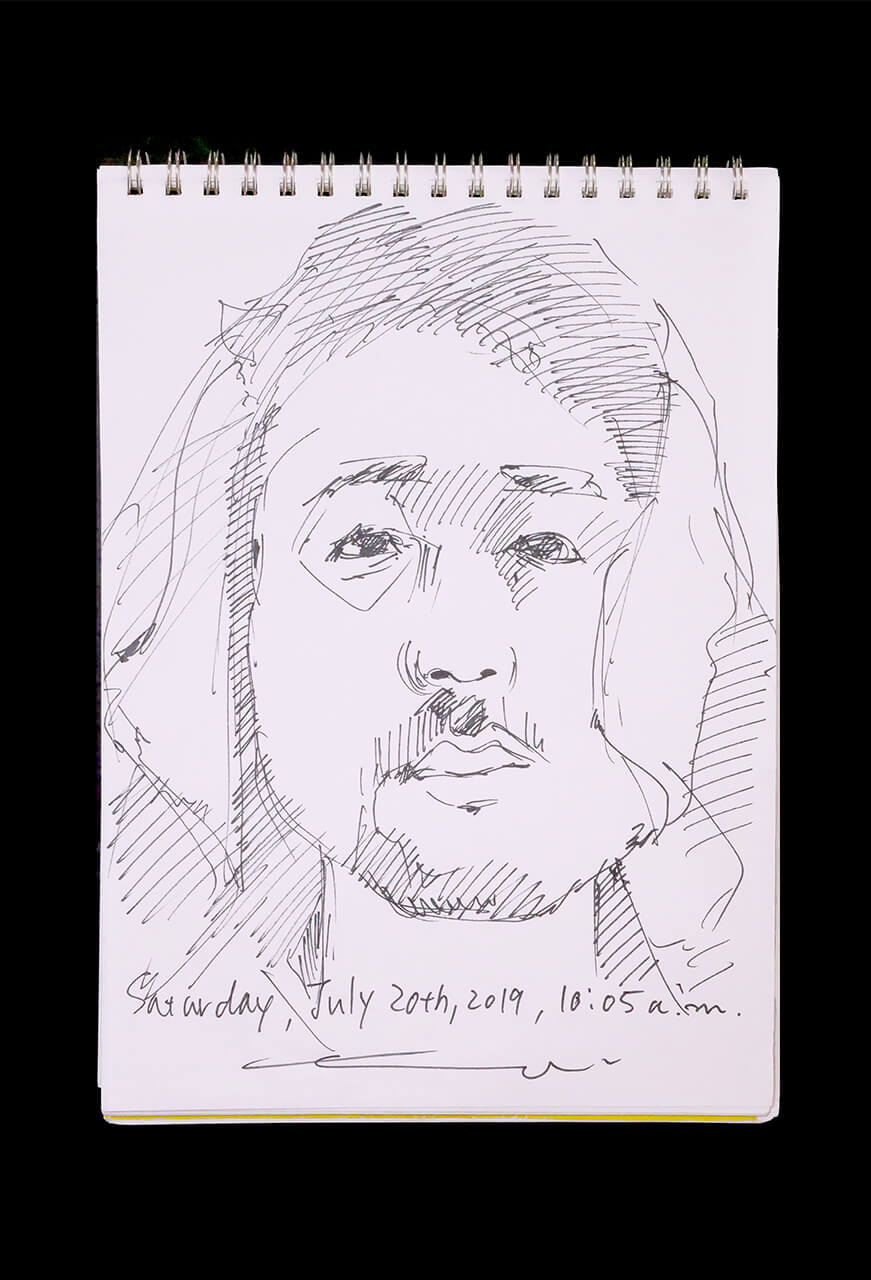 Saturday, July 20th, 2019, 10:05 a.m.